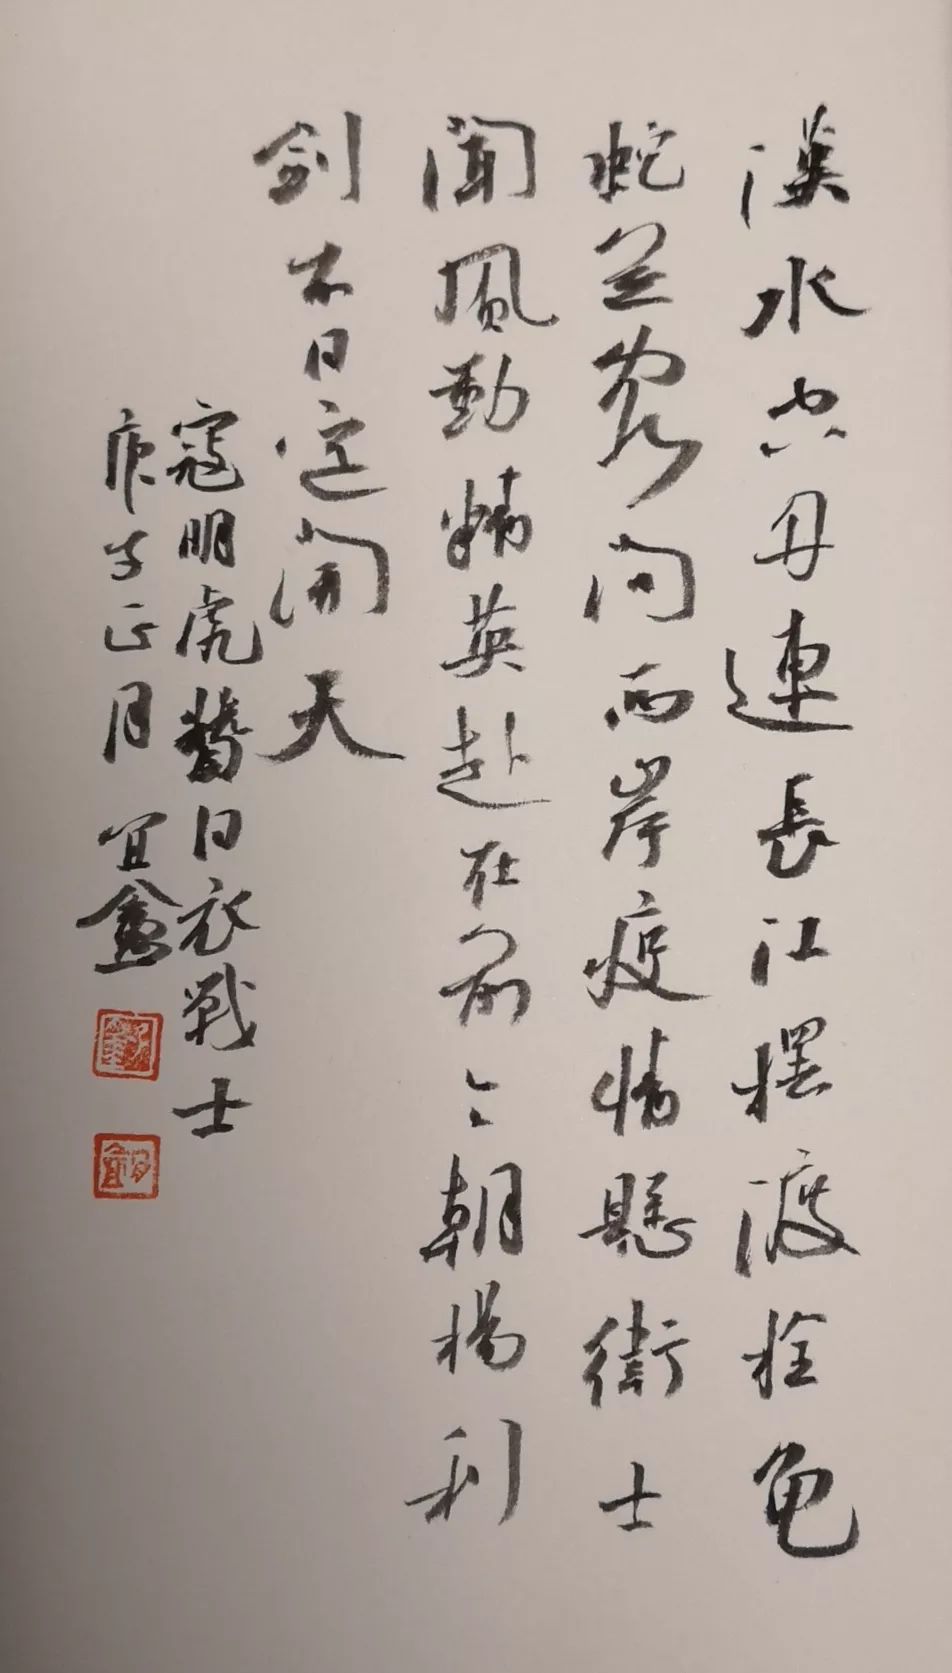 漢水空舟連長江摆渡栓龟
蛇问两岸疫情懸衛士
聞風動精英赴在前今朝揚利
剑不日定開天
寇明虎贊白衣戰士
庚子正月宜鑫